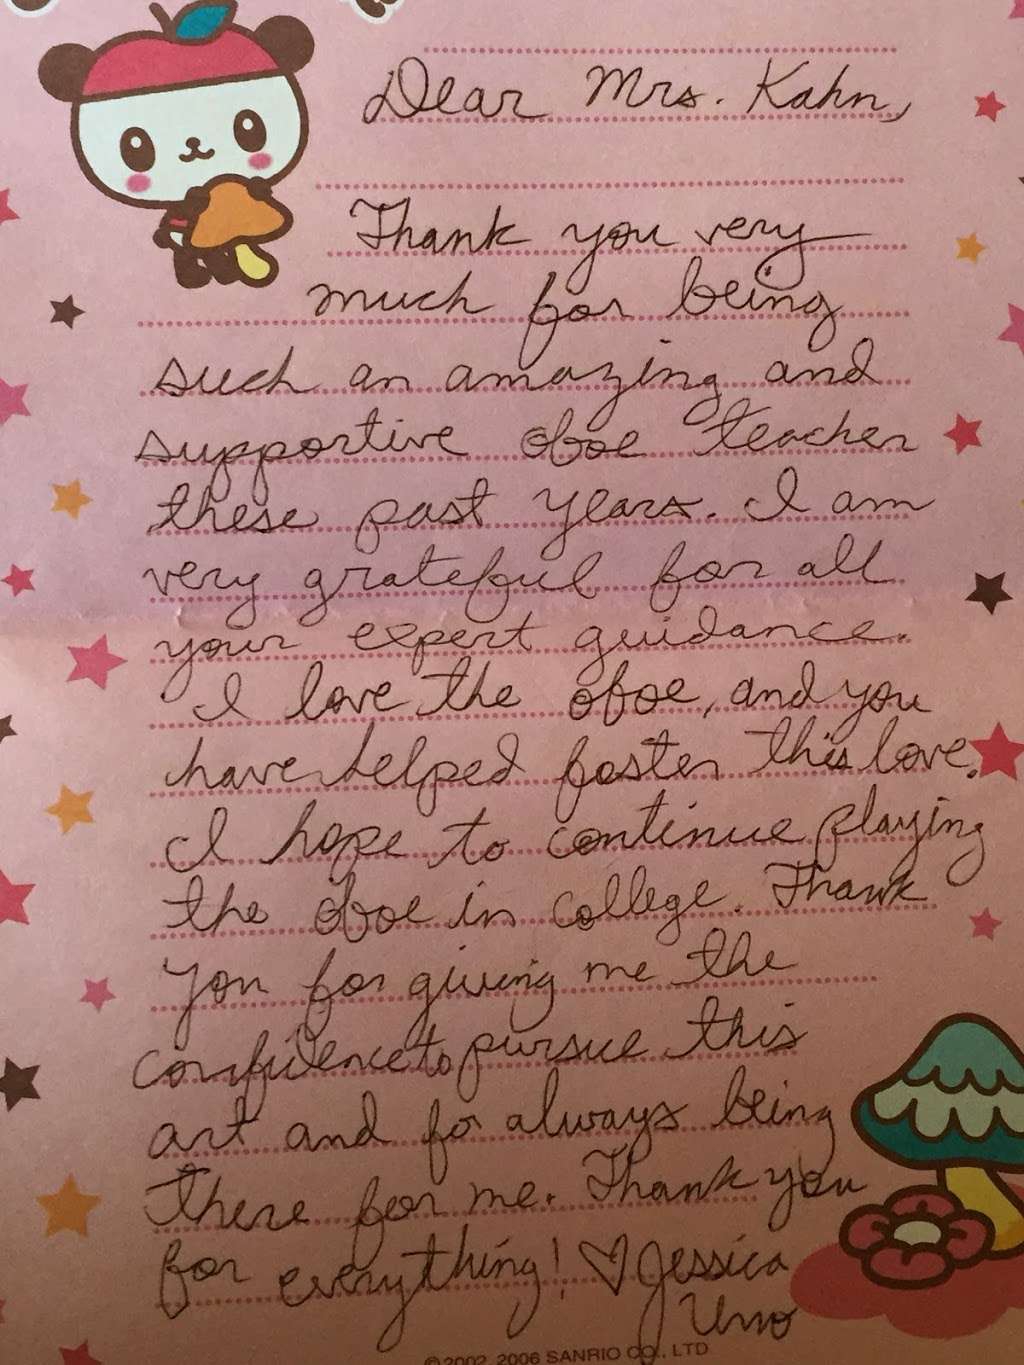 Dear Mrs. Kahn,
Thank you very
much for being
such an amazing and
supportive oboe teacher
these past years. I am
very grateful for all
your expert guidance.
I love the oboe, and you
have helped foster this love.
I hope to continue playing
the oboe in college. Thank
you for giving me the
confidence to pursue this
art and for always being
there for me. Thank you
for everything! ♡ Jessica
Uno
© 2002, 2006 SANRIO CO., LTD